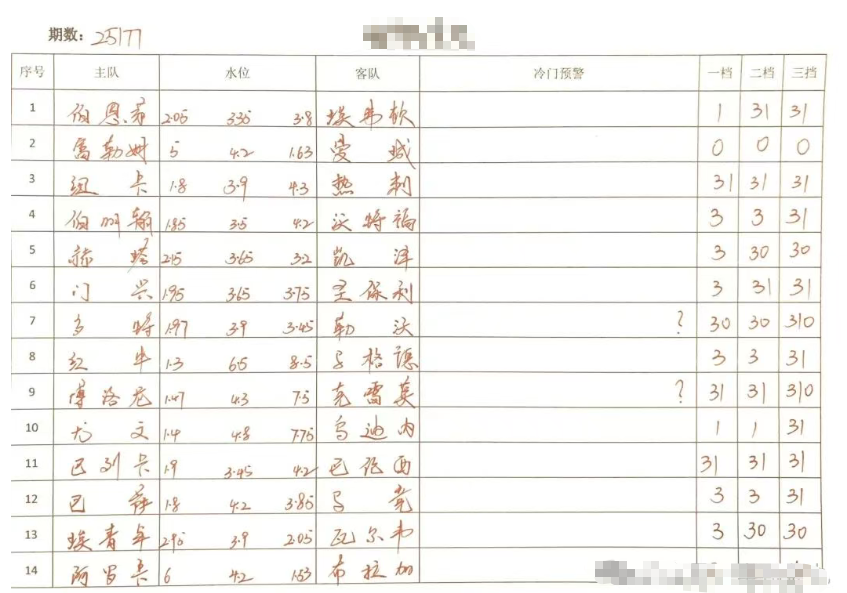 期数: 25177
序号 主队 水位 客队 冷门预警 一档 二档 三挡
1 伯恩茅 2.05 3.35 3.8 埃弗顿 1 31 31
2 富勒姆 5 4.2 1.63 曼城 0 0 0
3 纽卡 1.8 3.9 4.3 热刺 31 31 31
4 伯明翰 1.85 3.5 4.2 沃特福 3 3 31
5 赫塔 2.15 3.65 3.2 凯泽 3 30 30
6 门兴 1.95 3.65 3.75 圣保利 3 31 31
7 多特 1.97 3.9 3.45 勒沃 ? 30 30 310
8 红牛 1.3 6.5 8.5 马格德 3 3 31
9 博洛尼 1.47 4.3 7.5 克雷莫 ? 31 31 310
10 尤文 1.4 4.8 7.75 乌迪内 1 1 31
11 巴列卡 1.9 3.45 4.2 巴伦西 31 31 31
12 巴萨 1.8 4.2 3.85 马竞 3 3 31
13 埃青年 2.95 3.9 2.05 瓦尔韦 3 30 30
14 阿罗卡 6 4.2 1.53 布拉加